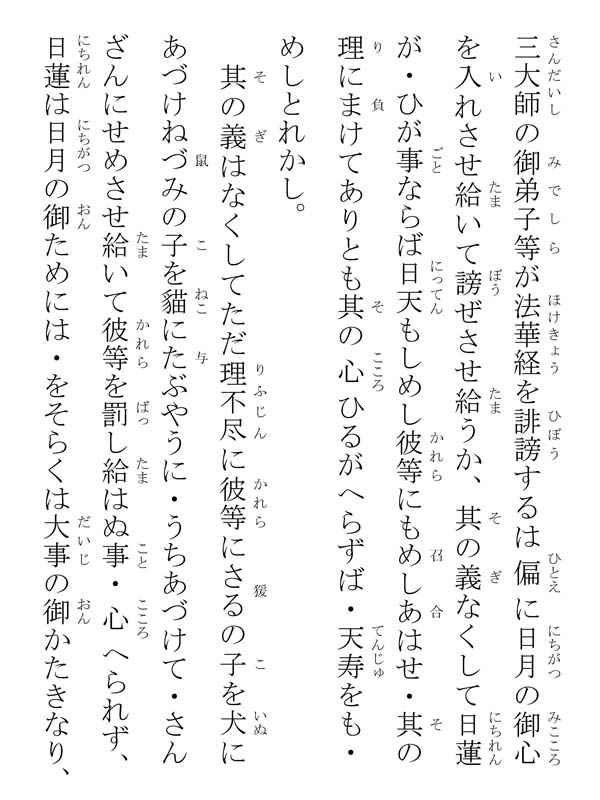 三大師の御弟子等が法華経を誹謗するは偏に日月の御心
を入れさせ給いて謗ぜさせ給うか、其の義なくして日蓮
が・ひが事ならば日天もしめし彼等にもめしあはせ・其の
理にまけてありとも其の心ひるがへらずば・天寿をも・
めしとれかし。
其の義はなくしてただ理不尽に彼等にさるの子を犬に
あづけねづみの子を猫にたぶやうに・うちあづけて・さん
ざんにせめさせ給いて彼等を罰し給はぬ事・心へられず、
日蓮は日月の御ためには・をそらくは大事の御かたきなり、